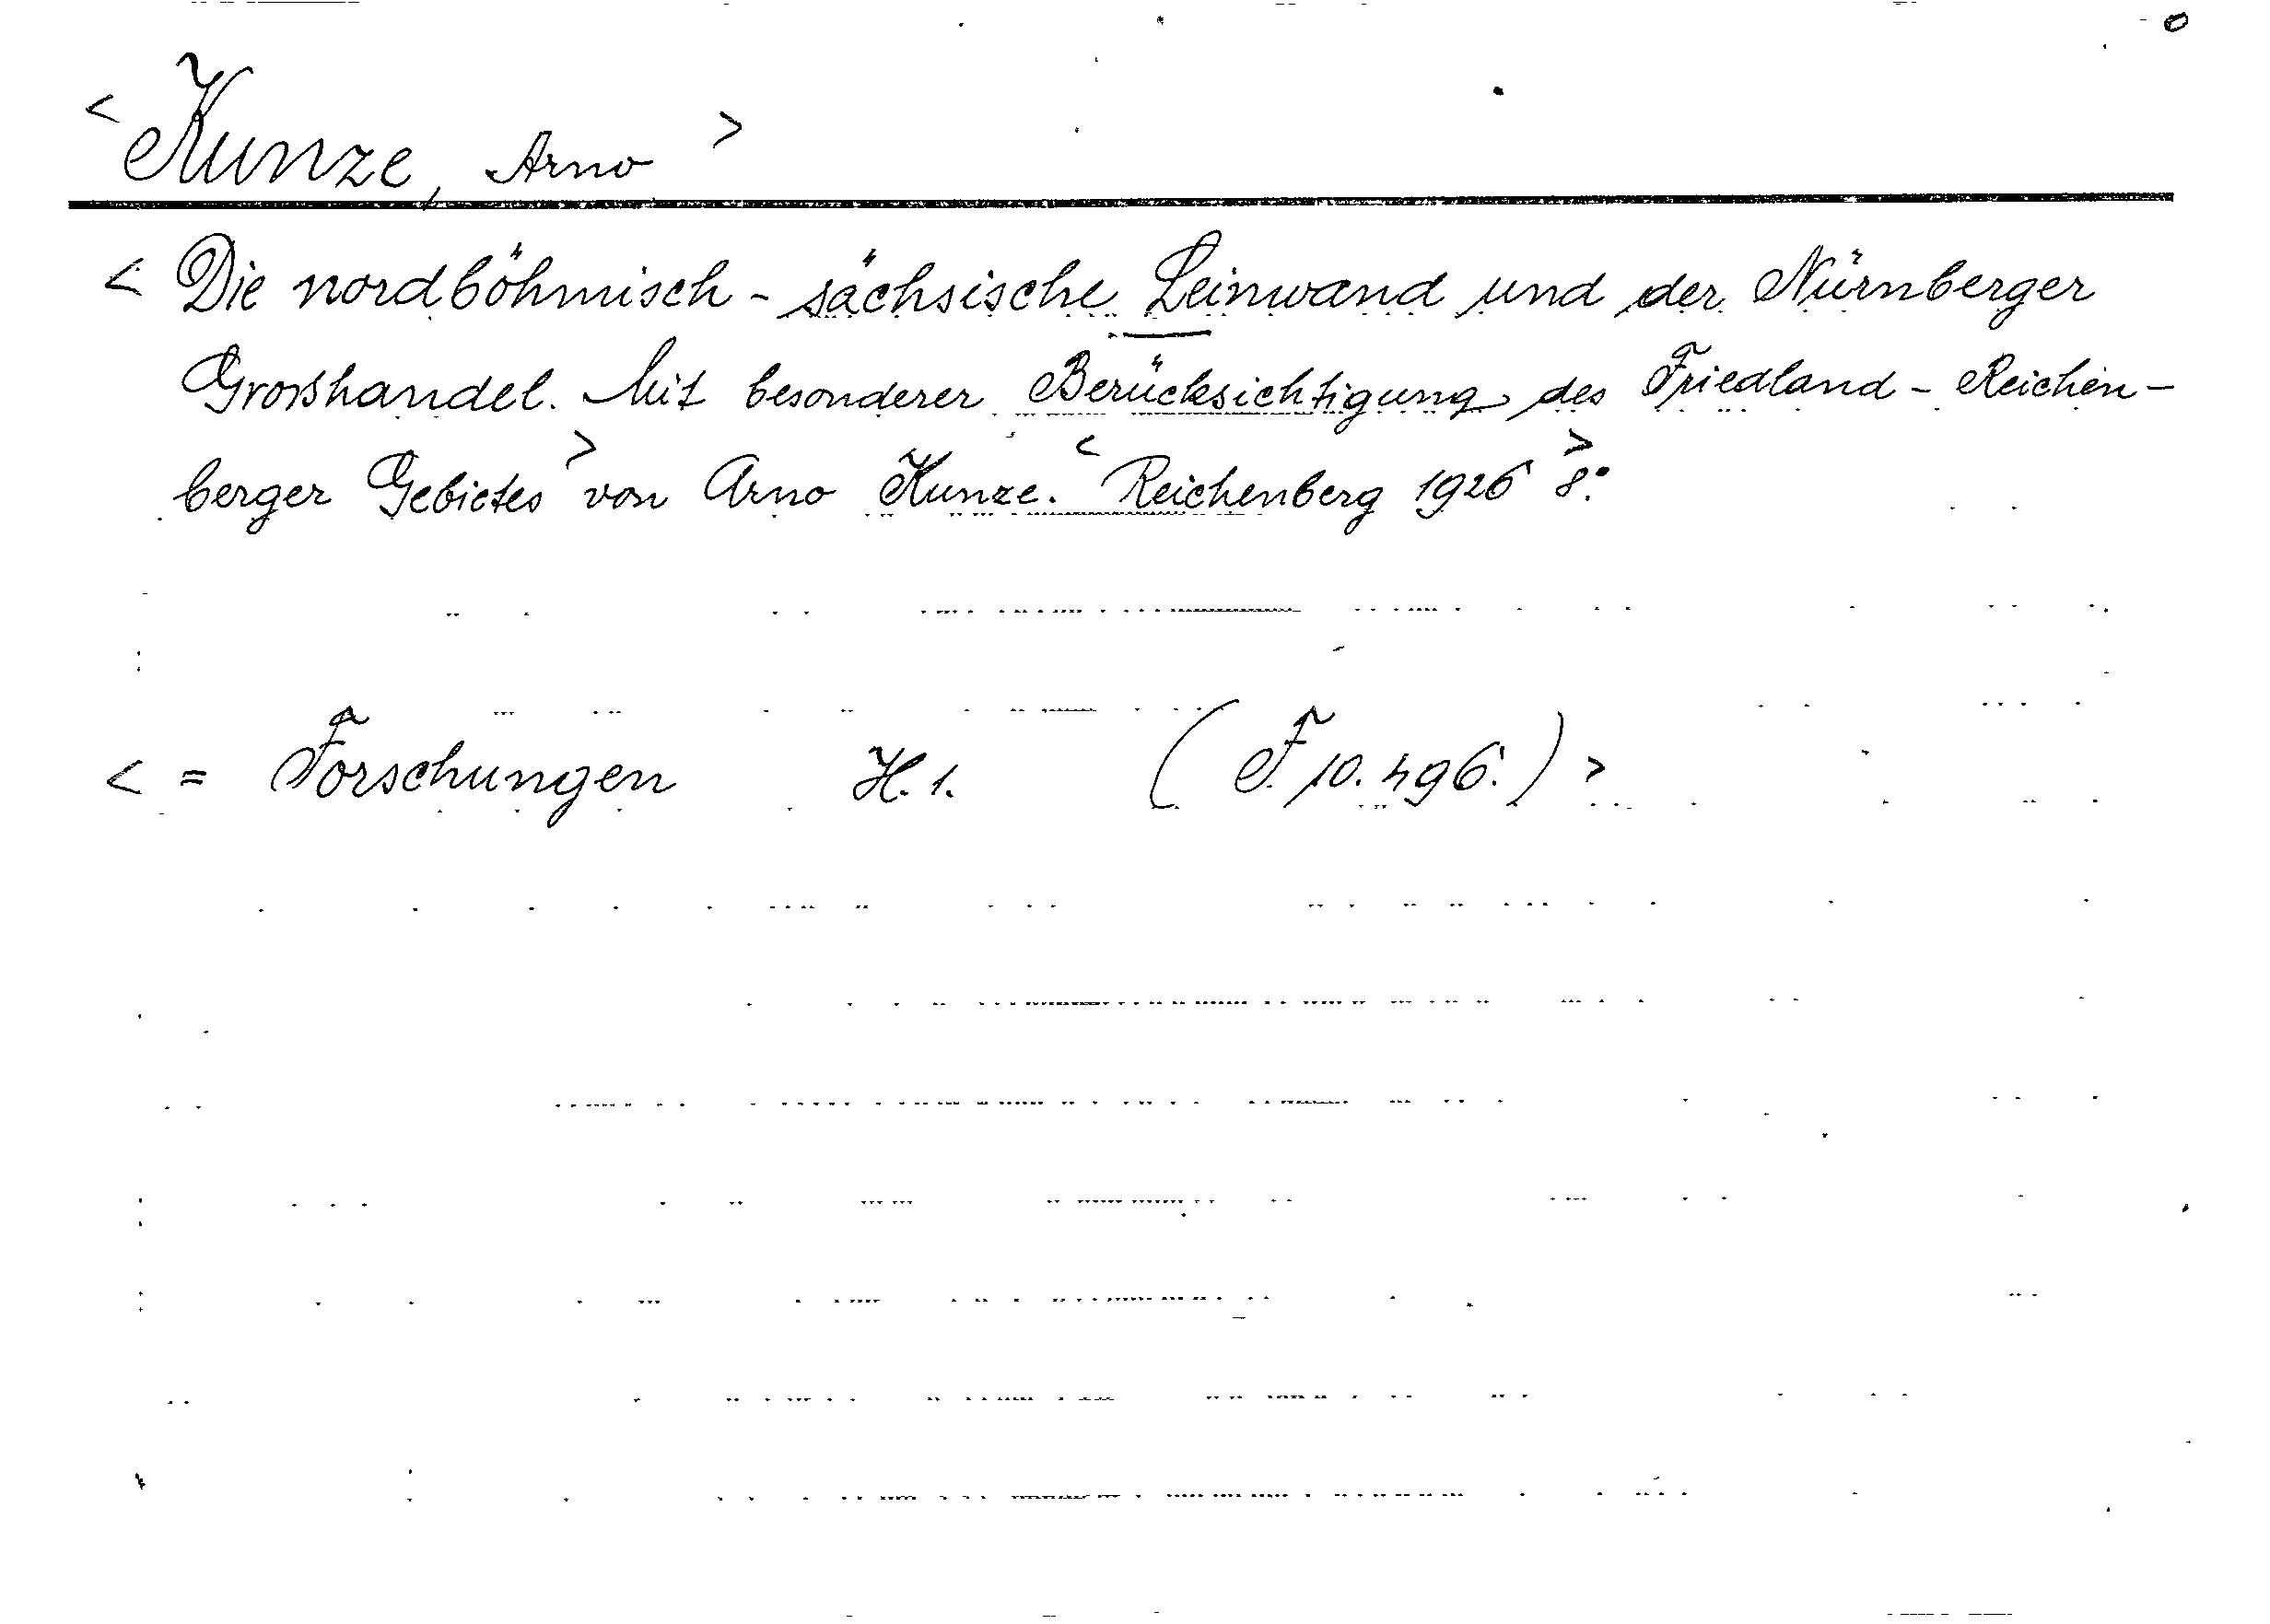 < Kunze, Arno >
< Die nordböhmisch - sächsische Leinwand und der Nürnberger
Großhandel. Mit besonderer Berücksichtigung des Friedland - Reichen-
berger Gebietes > von Arno Kunze. < Reichenberg 1926 > 8°
< = Forschungen H. 1. ( F 10. 496. ) >